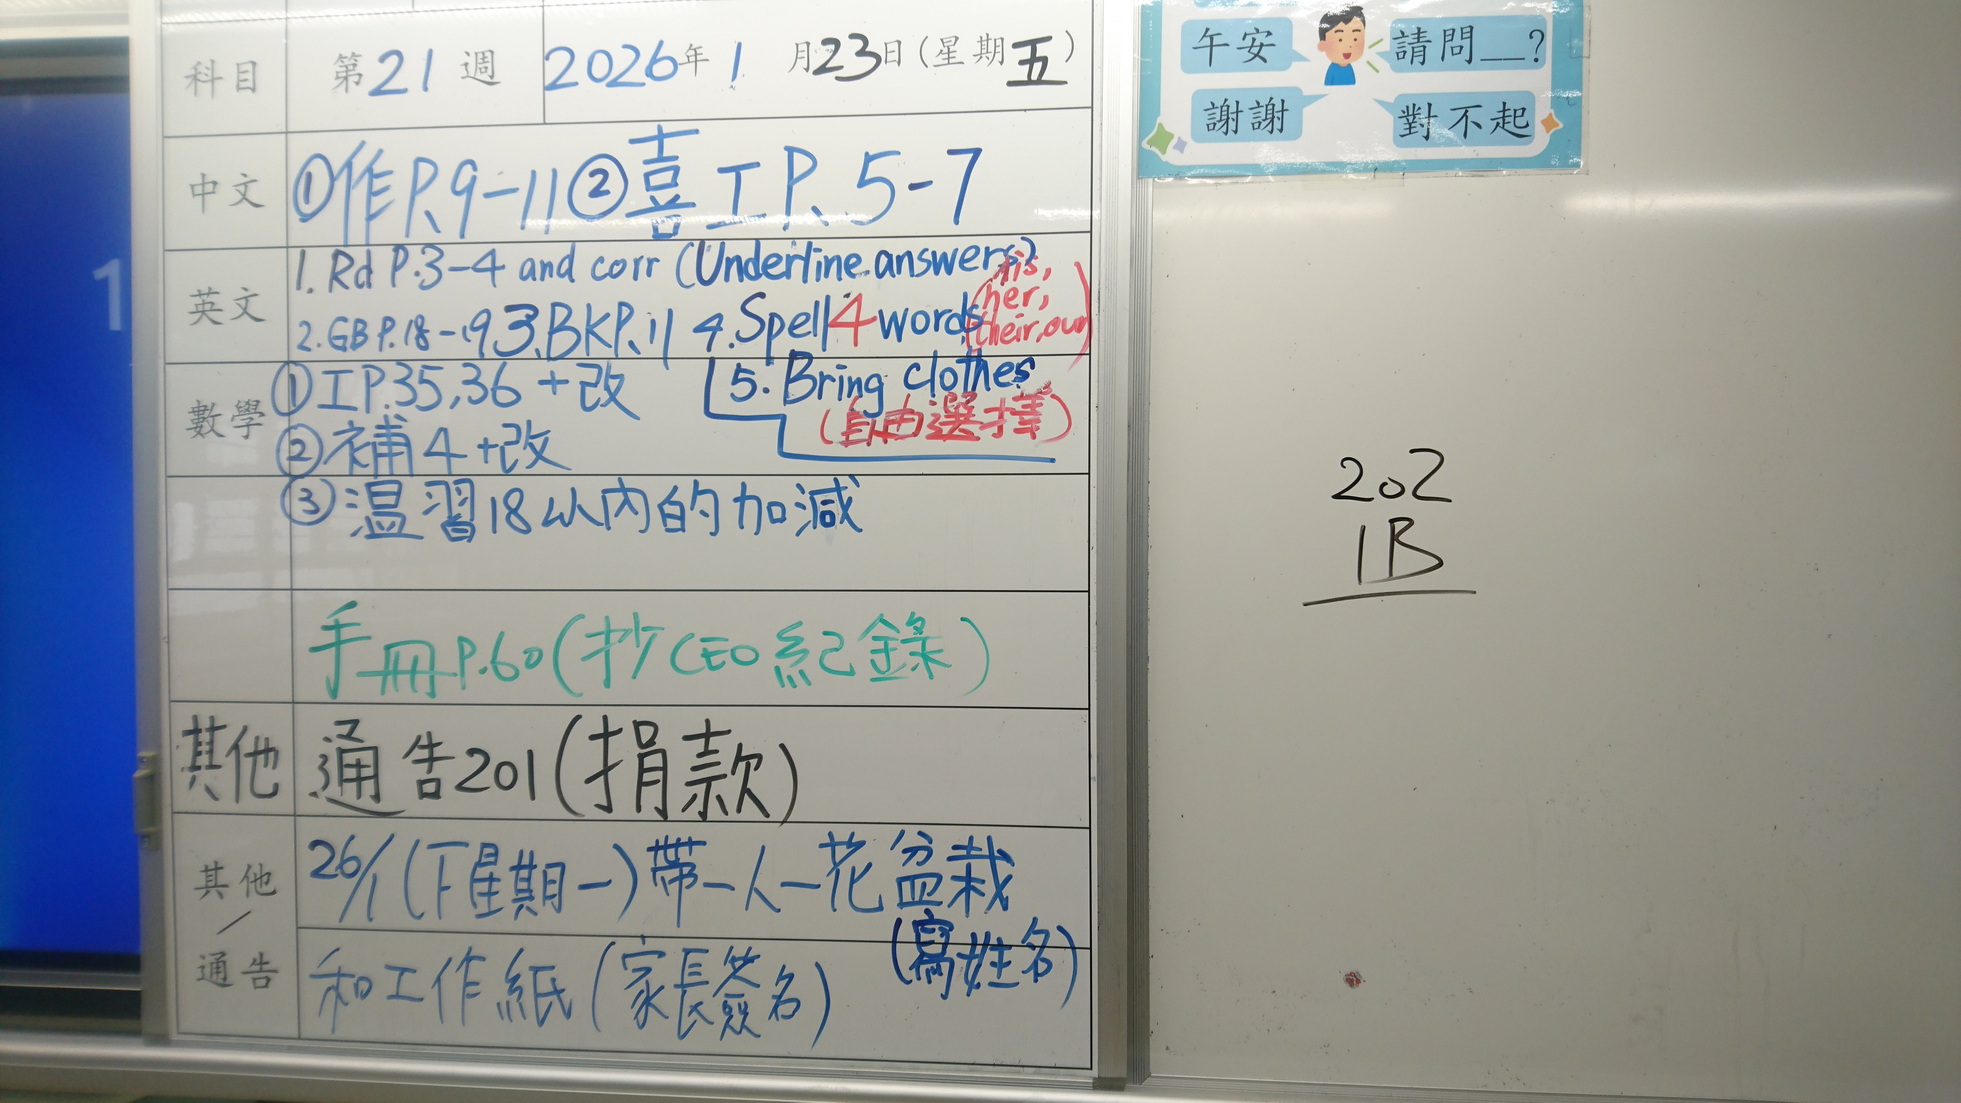 科目 第21週 2026年1月23日(星期五)
中文 ①作P.9-11②喜工P.5-7
英文 1. Rd P.3-4 and corr (Underline answers)
2. GB P.18-19 3. BK P.11 4. Spell 4 words (his, her, their, our)
5. Bring clothes
(自由選擇)
數學 ①工P.35,36 +改
②補4+改
③温習18以內的加減
手冊P.60(抄CEO紀錄)
其他 通告201(捐款)
其他/通告 26/1(下星期一)帶一人一花盆栽
(寫姓名)
和工作紙(家長簽名)
午安 請問__?
謝謝 對不起
202
1B
1